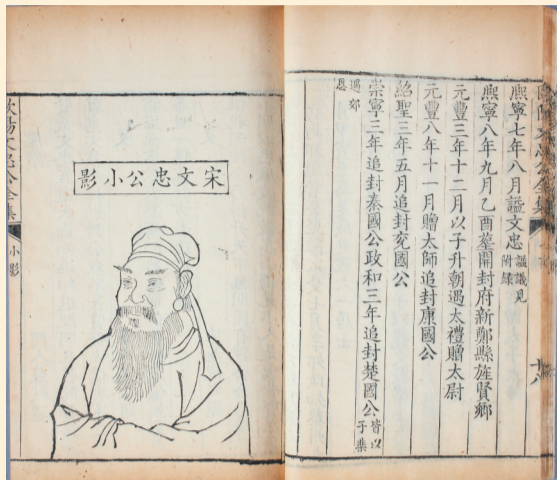 熙寧七年八月諡文忠諡議見附錄
熙寧八年九月乙酉葬開封府新鄭縣旌賢鄉
元豐三年十二月以子升朝遇大禮贈太尉
元豐八年十一月贈太師追封康國公
紹聖三年五月追封兗國公
崇寧三年追封秦國公政和三年追封楚國公皆以子棐
遇郊恩
宋文忠公小影
歐陽文忠公全集
小影